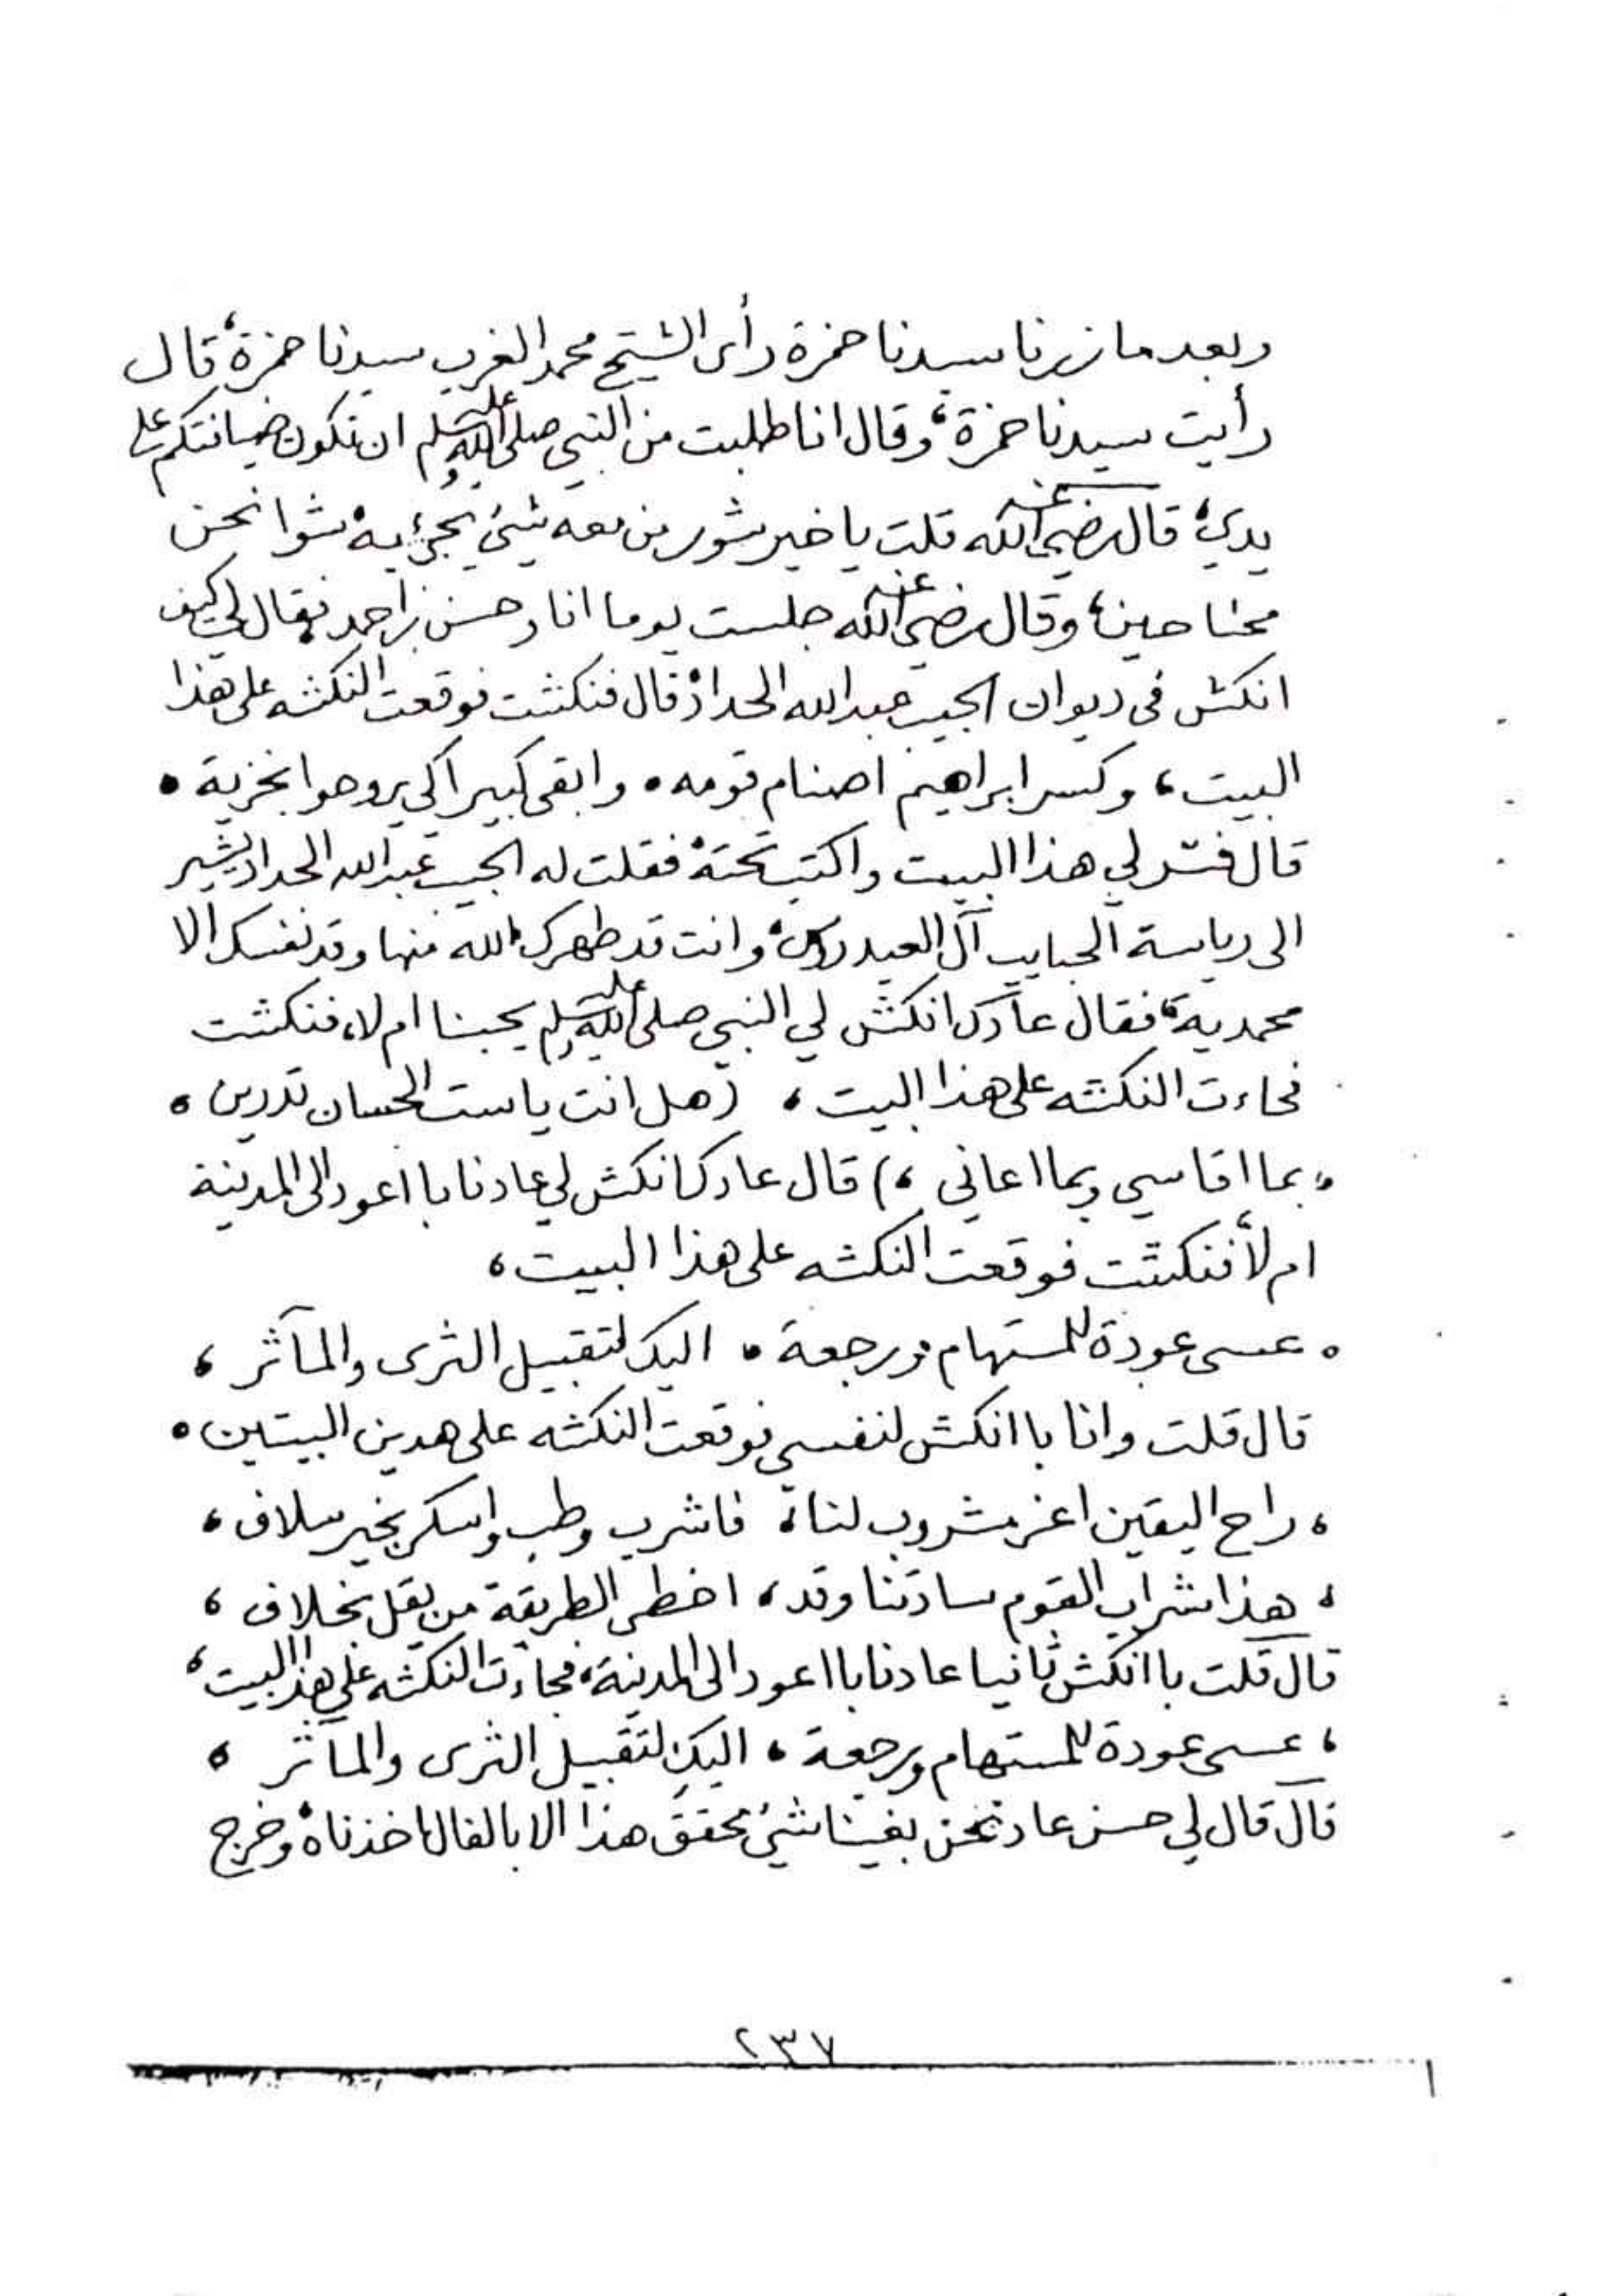 وبعد ما زرنا سيدنا حمزة رأى الشيخ محمد الغرب سيدنا حمزة، قال
رأيت سيدنا حمزة، وقال انا طلبت من النبي صلى الله عليه وسلم ان تكون ضيافتكم على
يدي، قال رضي الله عنه قلت يا خير من معه شيئ يجيئ به شوا نحن
محتاجين، وقال رضي الله عنه جلست يوما انا وحسن بن احمد فقال لي كيف
انكش في ديوان الحبيب عبدالله الحداد، قال فنكشت فوقعت النكشه على هذا
البيت، وكسر ابراهيم اصنام قومه • وابقى كبيرا كي يروحوا بخزية •
قال فسّر لي هذا البيت واكتب تحته، فقلت له الحبيب عبدالله الحداد يشير
الى رياسة الحبايب آل العيدروس، وانت قد طهرك الله منها وقد نفسك الا
محمدية، فقال عادك انكش لي النبي صلى الله عليه وسلم يحبنا ام لا، فنكشت
فجاءت النكشه على هذا البيت، (هل انت يا ست الحسان تدرين •
• بما اقاسي وبما اعاني،) قال عادك انكش لي عادنا با اعود الى المدينة
ام لا، فنكشت فوقعت النكشه على هذا البيت،
• عسى عودة للمستهام ورجعة • اليك لتقبيل الثرى والمآثر،
قال قلت وانا با انكش لنفسي فوقعت النكشه على هدين البيتين •
، راح اليقين اعز مشروب لنا، فاشرب وطب واسكر بخير سلاف،
، هذا شراب القوم سادتنا وقد، اخطى الطريقة من يقل بخلاف،
قال قلت با انكش ثانيا عادنا با اعود الى المدينة، فجاءت النكشه على هذا البيت،
، عسى عودة للمستهام ورجعة، اليك لتقبيل الثرى والمآثر •
قال قال لي حسن عاد نحن بغينا شيئ محقق هذا الا بالفال اخذناه، وخرج
٢٣٧